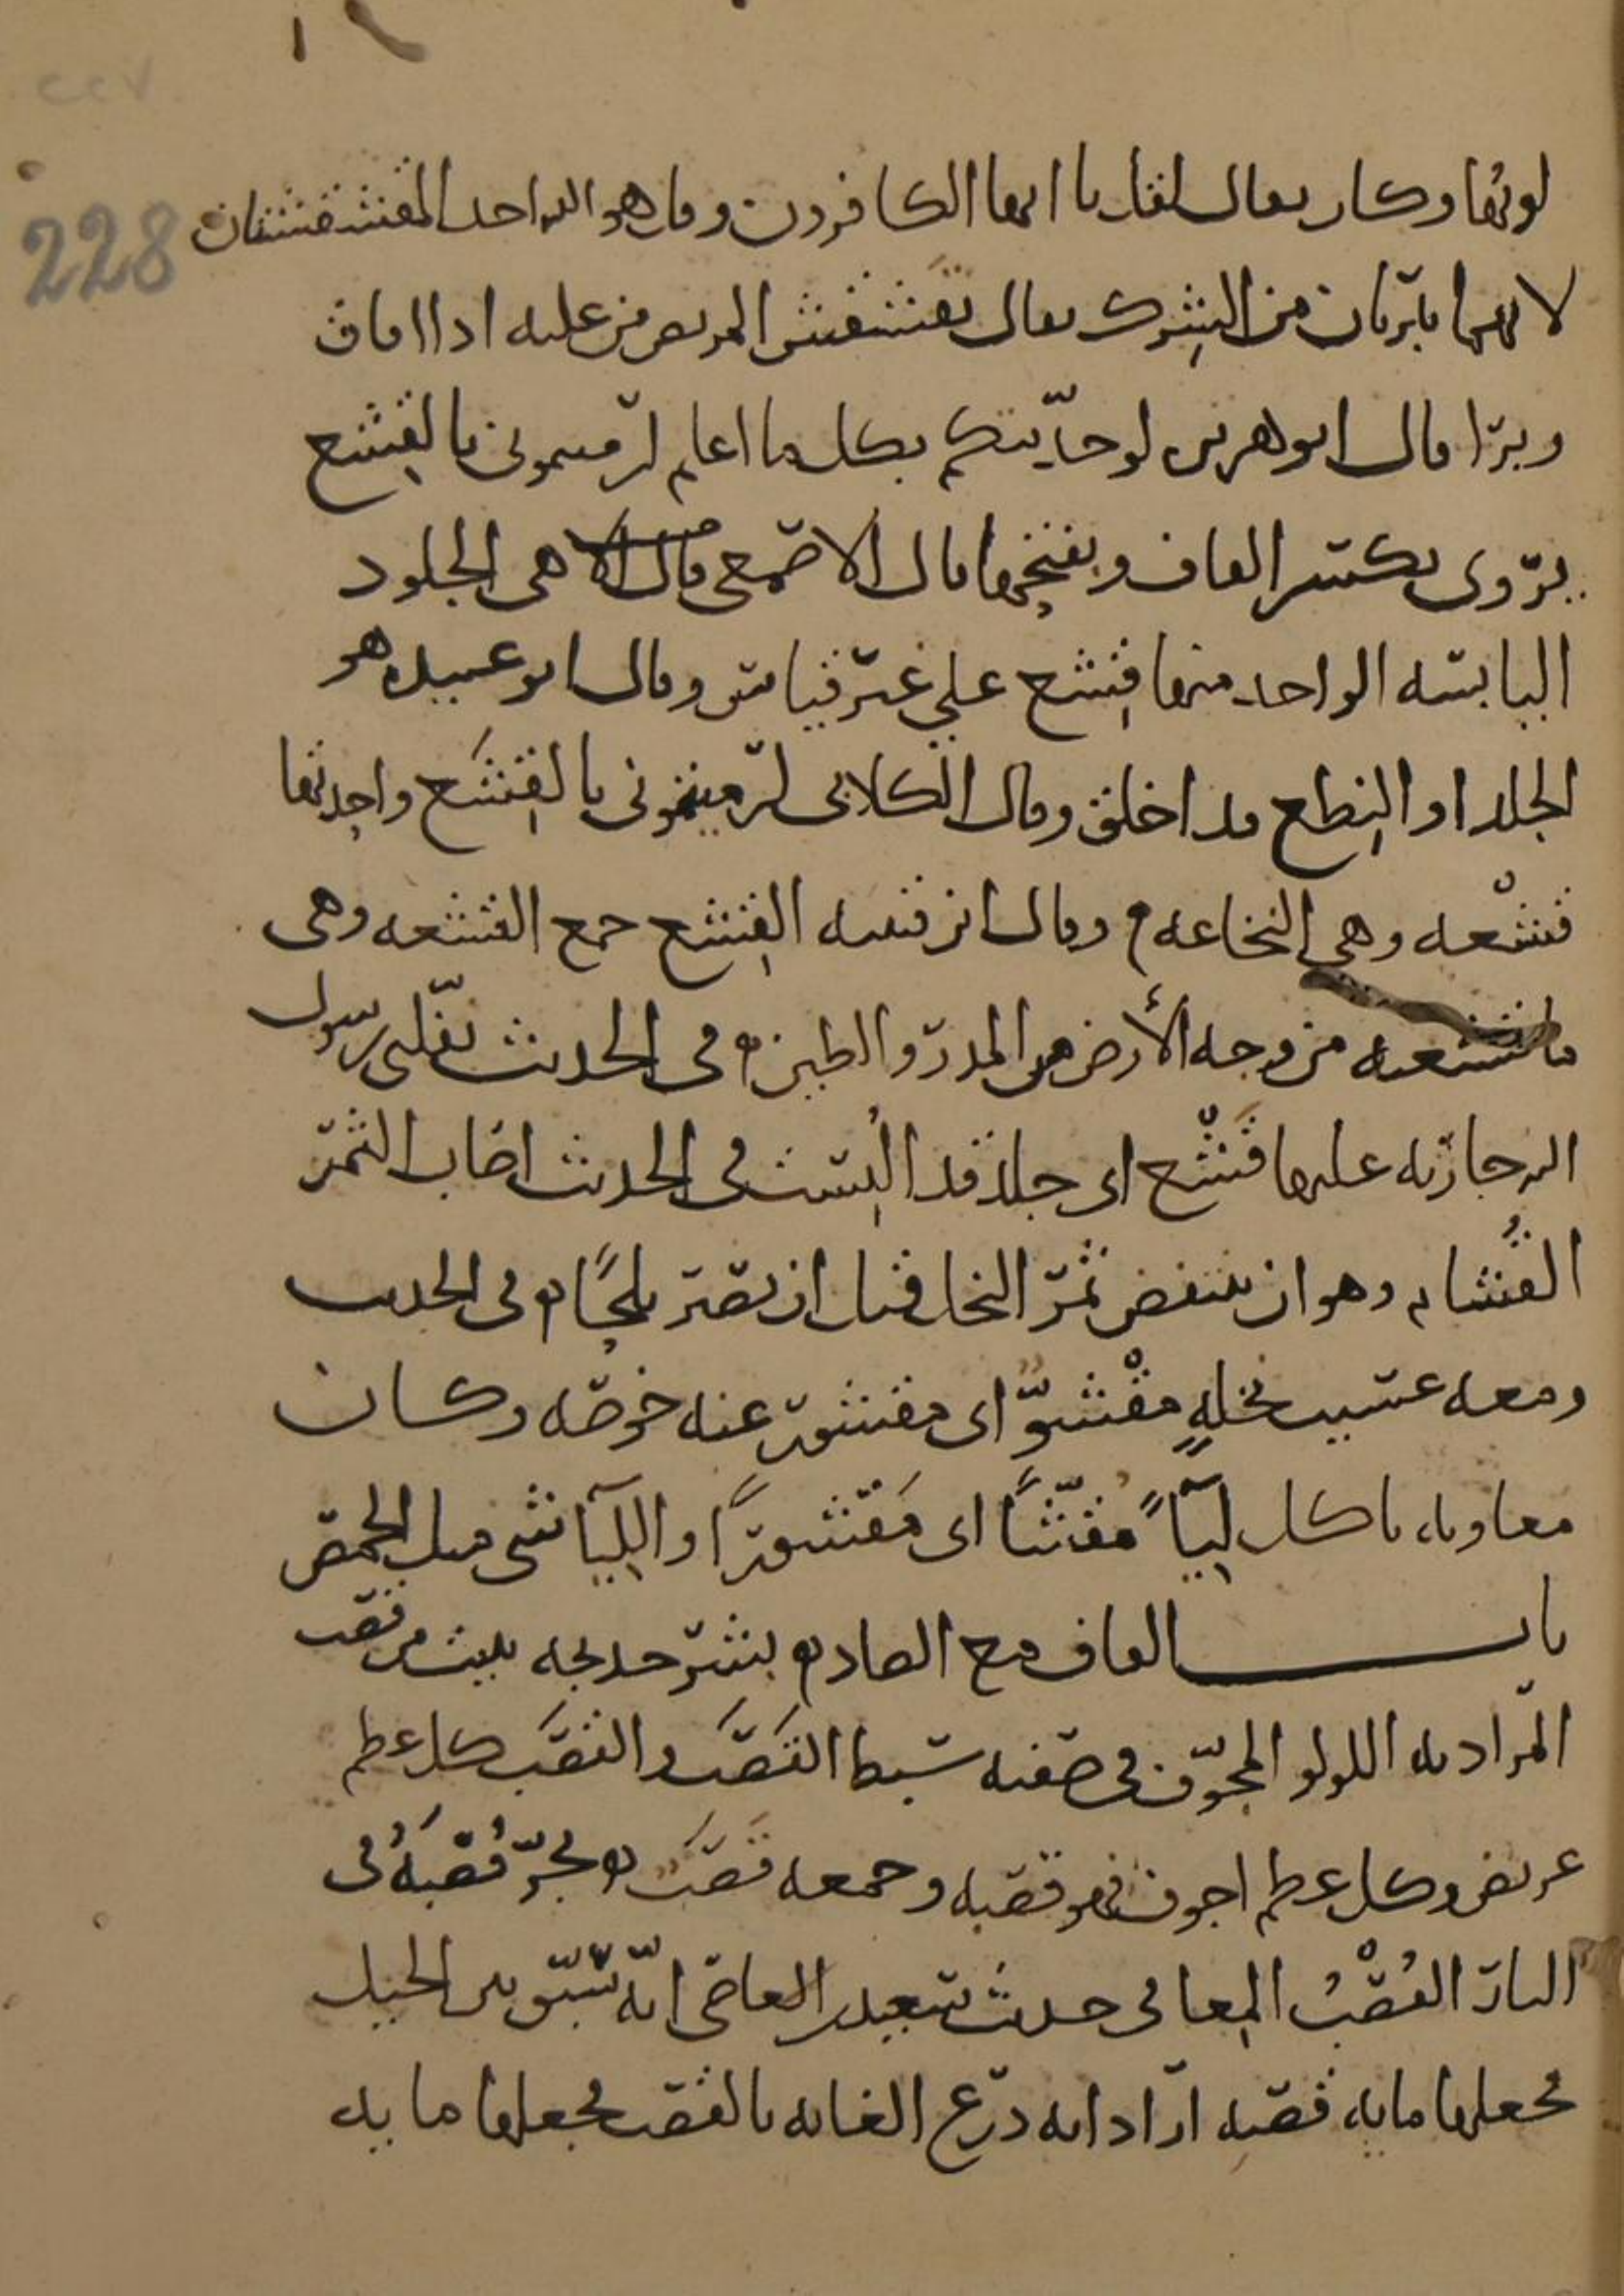 ٢٢٧
228
لونها وكان يقال لقل يا ايها الكافرون وقل هو الله احد المقشقشتان
لانهما يبريان من الشرك يقال تقشقش المريض من علته اذا افاق
وبرا قال ابو هريره لو حدثتكم بكل ما اعلم لرميتموني بالقشع
يروى بكسر القاف وبفتحها قال الاصمعي هي الجلود
اليابسه الواحد منها قشع على غير قياس وقال ابو عبيده هو
الجلد او النطع قد اخلق وقال الكلابي لرميتموني بالقشع واحدتها
قشعه وهي النخاعه وقال ابن قتيبه القشع جمع القشعه وهي
ما قشعته من وجه الأرض من المدر والطين في الحديث نفلني رسول
الله جاريه عليها قشع اي جلد قد البست في الحديث اصاب الثمر
القشام وهو ان ينتفض ثمر النخل قبل ان يصير بلحًا في الحديث
ومعه عسيب نخلةٍ مقشوّ اي مقشور عنه خوصه وكان
معاويه ياكل لياءً مقشًّا اي مقشورًا واللياء شي مثل الحمص
باب القاف مع الصاد بشر خديجه ببيت من قصب
المراد به اللولو المجوف في صفته سبط القصب والقصب كل عظم
عريض وكل عظم اجوف فهو قصبه وجمعه قصب يجر قصبه في
النار القصب المعا في حديث سعيد بن العاص انه سبق بين الخيل
فجعلها مايه قصبه اراد انه ذرع الغايه بالقصب فجعلها مايه